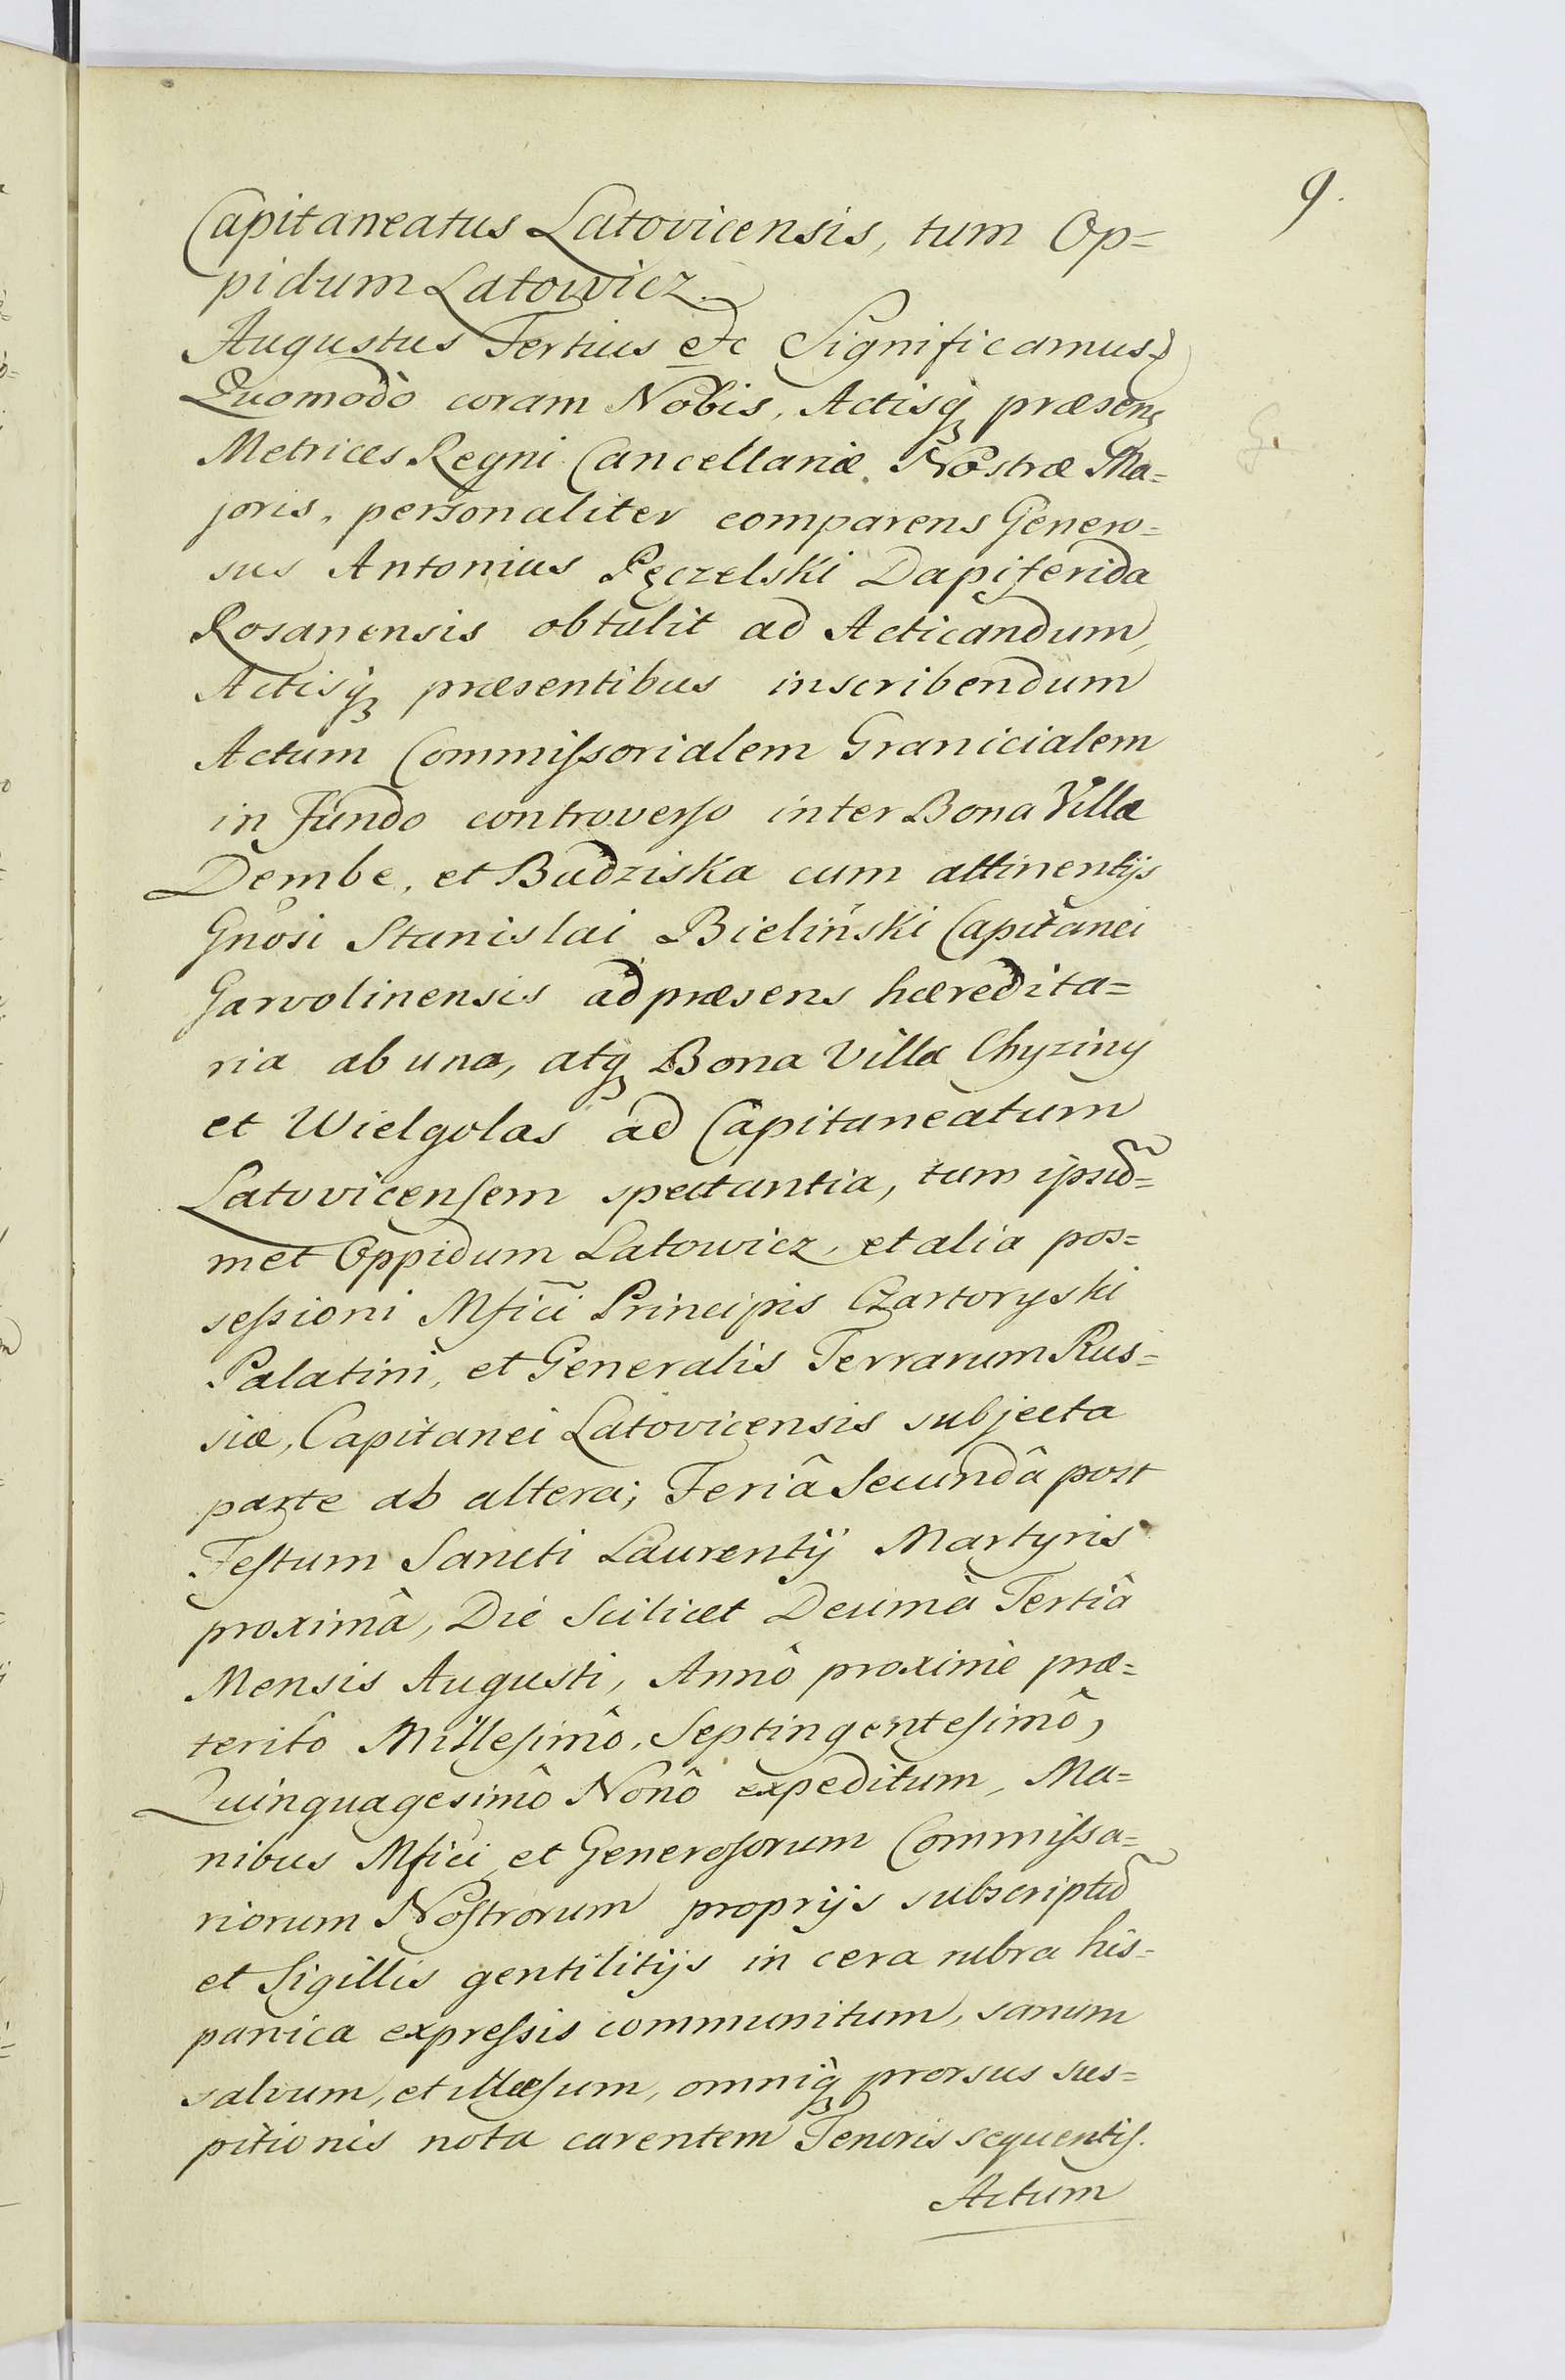 9.
Capitaneatus Latovicensis, tum Op=
pidum Latowicz.
Augustus Tertius etc Significamus
Quomodò coram Nobis, Actisq præsens
Metrices Regni Cancellariæ Nostræ Ma=
joris, personaliter comparens Genero=
sus Antonius Pęczelski Dapiferida
Rosanensis obtulit ad Acticandum,
Actisq præsentibus inscribendum
Actum Commiſsorialem Granicialem
in fundo controverſo inter Bona Villæ
Dembe, et Budziska cum attinentijs
Gnosi Stanislai Bieliński Capitanei
Garvolinensis ad præsens hæredita=
ria ab una, atq Bona Villæ Chyziny
et Wielgolas ad Capitaneatum
Latovicenſem spectantia, tum ipsud=
met Oppidum Latowicz, et alia pos=
seſsioni Mfici Principis Czartoryski
Palatini, et Generalis Terrarum Rus=
siæ, Capitanei Latovicensis subjecta
parte ab altera; Feriâ Secundâ post
Feſtum Sancti Laurentij Martyris
proximâ, Die Scilicet Decimâ Tertiâ
Mensis Augusti, Annô proximè præ=
teritô Milleſimô, Septingenteſimô,
Quinquagesimô Nonô expeditum, Ma=
nibus Mfici et Generoſorum Commiſsa=
riorum Noſtrorum proprijs subscriptũ
et Sigillis gentilitijs in cera rubra his=
panica expreſsis communitum, sanum
salvum, et illæſum, omniq prorsus sus=
pitionis nota carentem Tenoris sequentiſ.
Actum